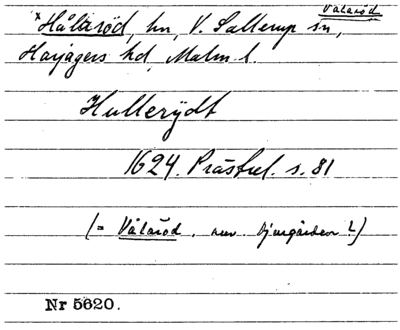 Vålaröd
*Hålaröd, hn, V. Sallerup sn,
Harjagers hd, Malm. l.
Hullerÿdt
1624. Prästrel. s. 81
(= Vålaröd, nuv. Djurgården ?)
Nr 5620.